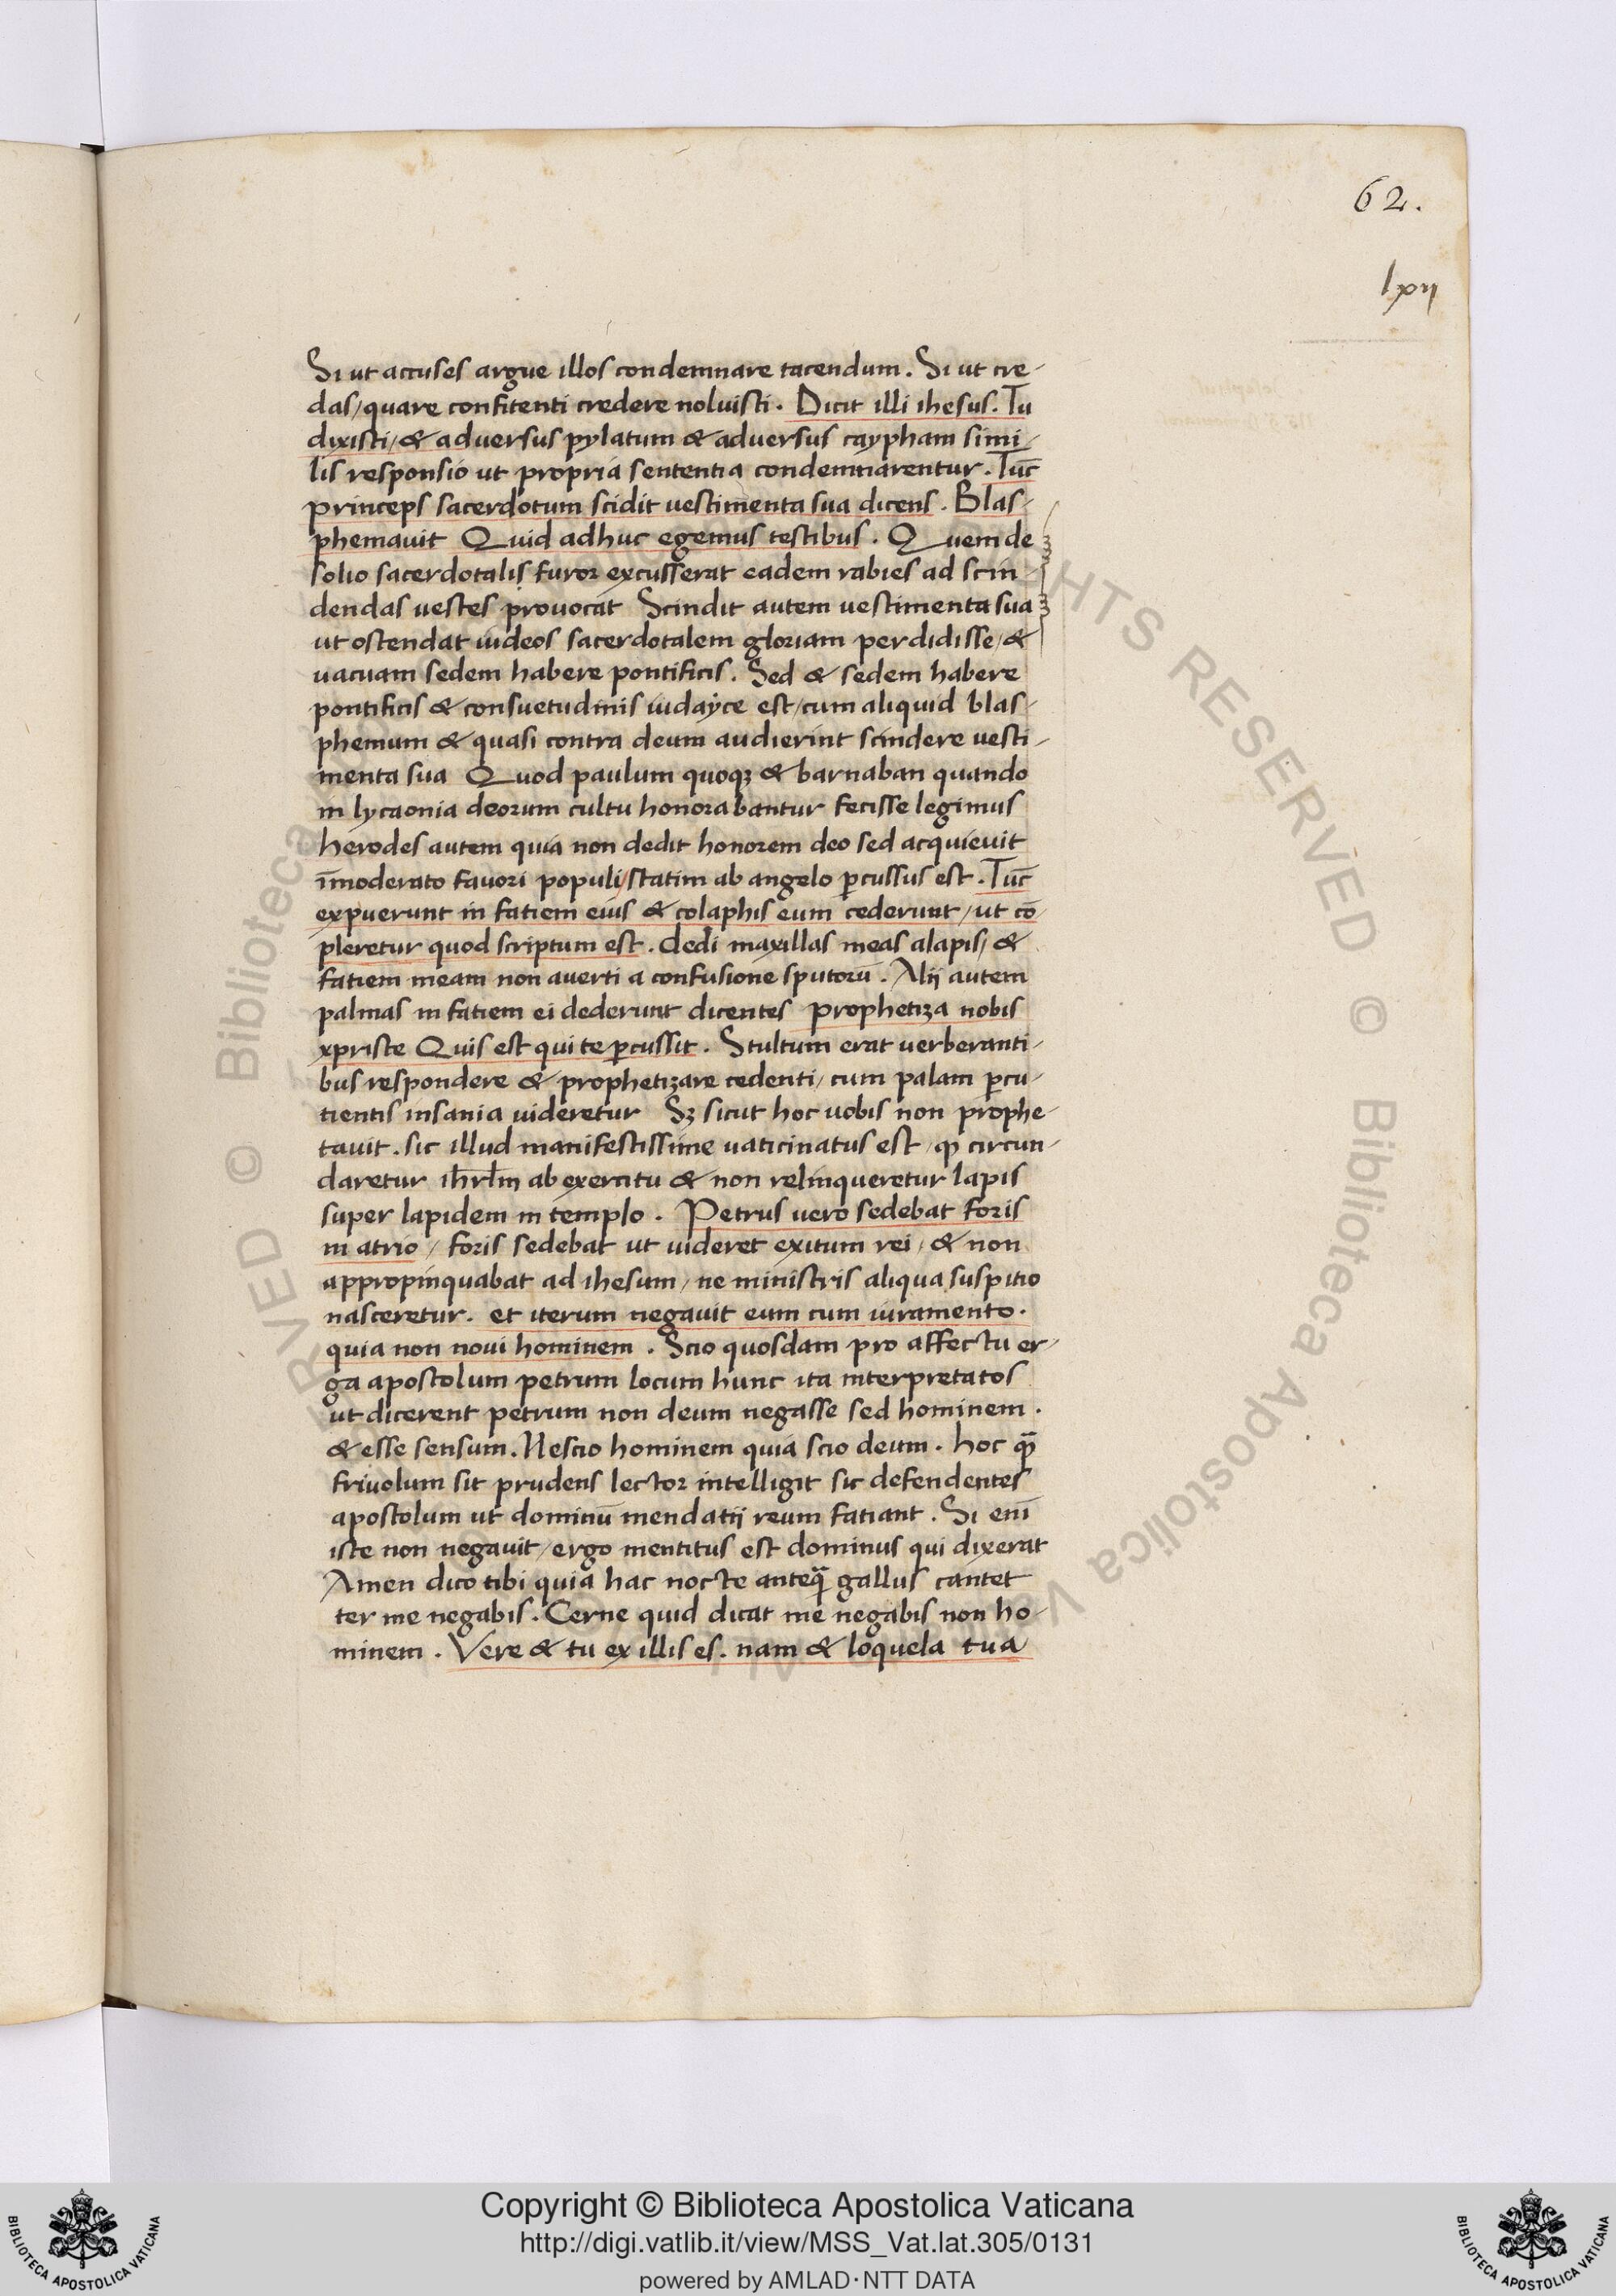 62.
lxii
Si ut accuses argue illos condemnare tacendum. Si ut cre-
das/quare confitenti credere noluisti. Dicit illi ihesus. Tu
dixisti/& adversus pylatum & adversus caypham simi-
lis responsio ut propria sententia condemnarentur. Tūc
princeps sacerdotum scidit vestimenta sua dicens. Blas-
phemavit Quid adhuc egemus testibus. Quem de
solio sacerdotalis furor excusserat eadem rabies ad scin-
dendas vestes provocat Scindit autem vestimenta sua
ut ostendat iudeos sacerdotalem gloriam perdidisse/&
vacuam sedem habere pontificis. Sed & sedem habere
pontificis & consuetudinis iudayce est/cum aliquid blas-
phemum & quasi contra deum audierint scindere vesti-
menta sua Quod paulum quoqꝫ & barnaban quando
in lycaonia deorum cultu honorabantur fecisse legimus
herodes autem quia non dedit honorem deo sed acquievit
īmoderato favori populi/statim ab angelo ꝑcussus est. Tūc
expuerunt in fatiem eius & colaphis eum cederunt/ut cō-
pleretur quod scriptum est. dedi maxillas meas alapis/&
fatiem meam non averti a confusione sputorū. Alij autem
palmas in fatiem ei dederunt dicentes prophetiza nobis
xpriste Quis est qui te ꝑcussit. Stultum erat verberanti-
bus respondere & prophetizare cedenti/cum palam ꝑcu-
tientis insania videretur Sꝫ sicut hoc vobis non prophe-
tavit. sic illud manifestissime vaticinatus est/ꝙ circun-
daretur ihrlm̄ ab exercitu & non relinqueretur lapis
super lapidem in templo. Petrus vero sedebat foris
in atrio/foris sedebat ut videret exitum rei/& non
appropinquabat ad ihesum/ne ministris aliqua suspitio
nasceretur. et iterum negavit eum cum iuramento.
quia non novi hominem. Scio quosdam pro affectu er-
ga apostolum petrum locum hunc ita interpretatos
ut dicerent petrum non deum negasse sed hominem.
& esse sensum. Nescio hominem quia scio deum. hoc qꝫ̄
frivolum sit prudens lector intelligit sic defendentes
apostolum ut dominū mendatij reum fatiant. Si enī
iste non negavit/ergo mentitus est dominus qui dixerat
Amen dico tibi quia hac nocte anteqꝫ̄ gallus cantet
ter me negabis. Cerne quid dicat me negabis non ho-
minem. Vere & tu ex illis es. nam & loquela tua
Copyright © Biblioteca Apostolica Vaticana
http://digi.vatlib.it/view/MSS_Vat.lat.305/0131
powered by AMLAD·NTT DATA
BIBLIOTECA APOSTOLICA VATICANA
BIBLIOTECA APOSTOLICA VATICANA